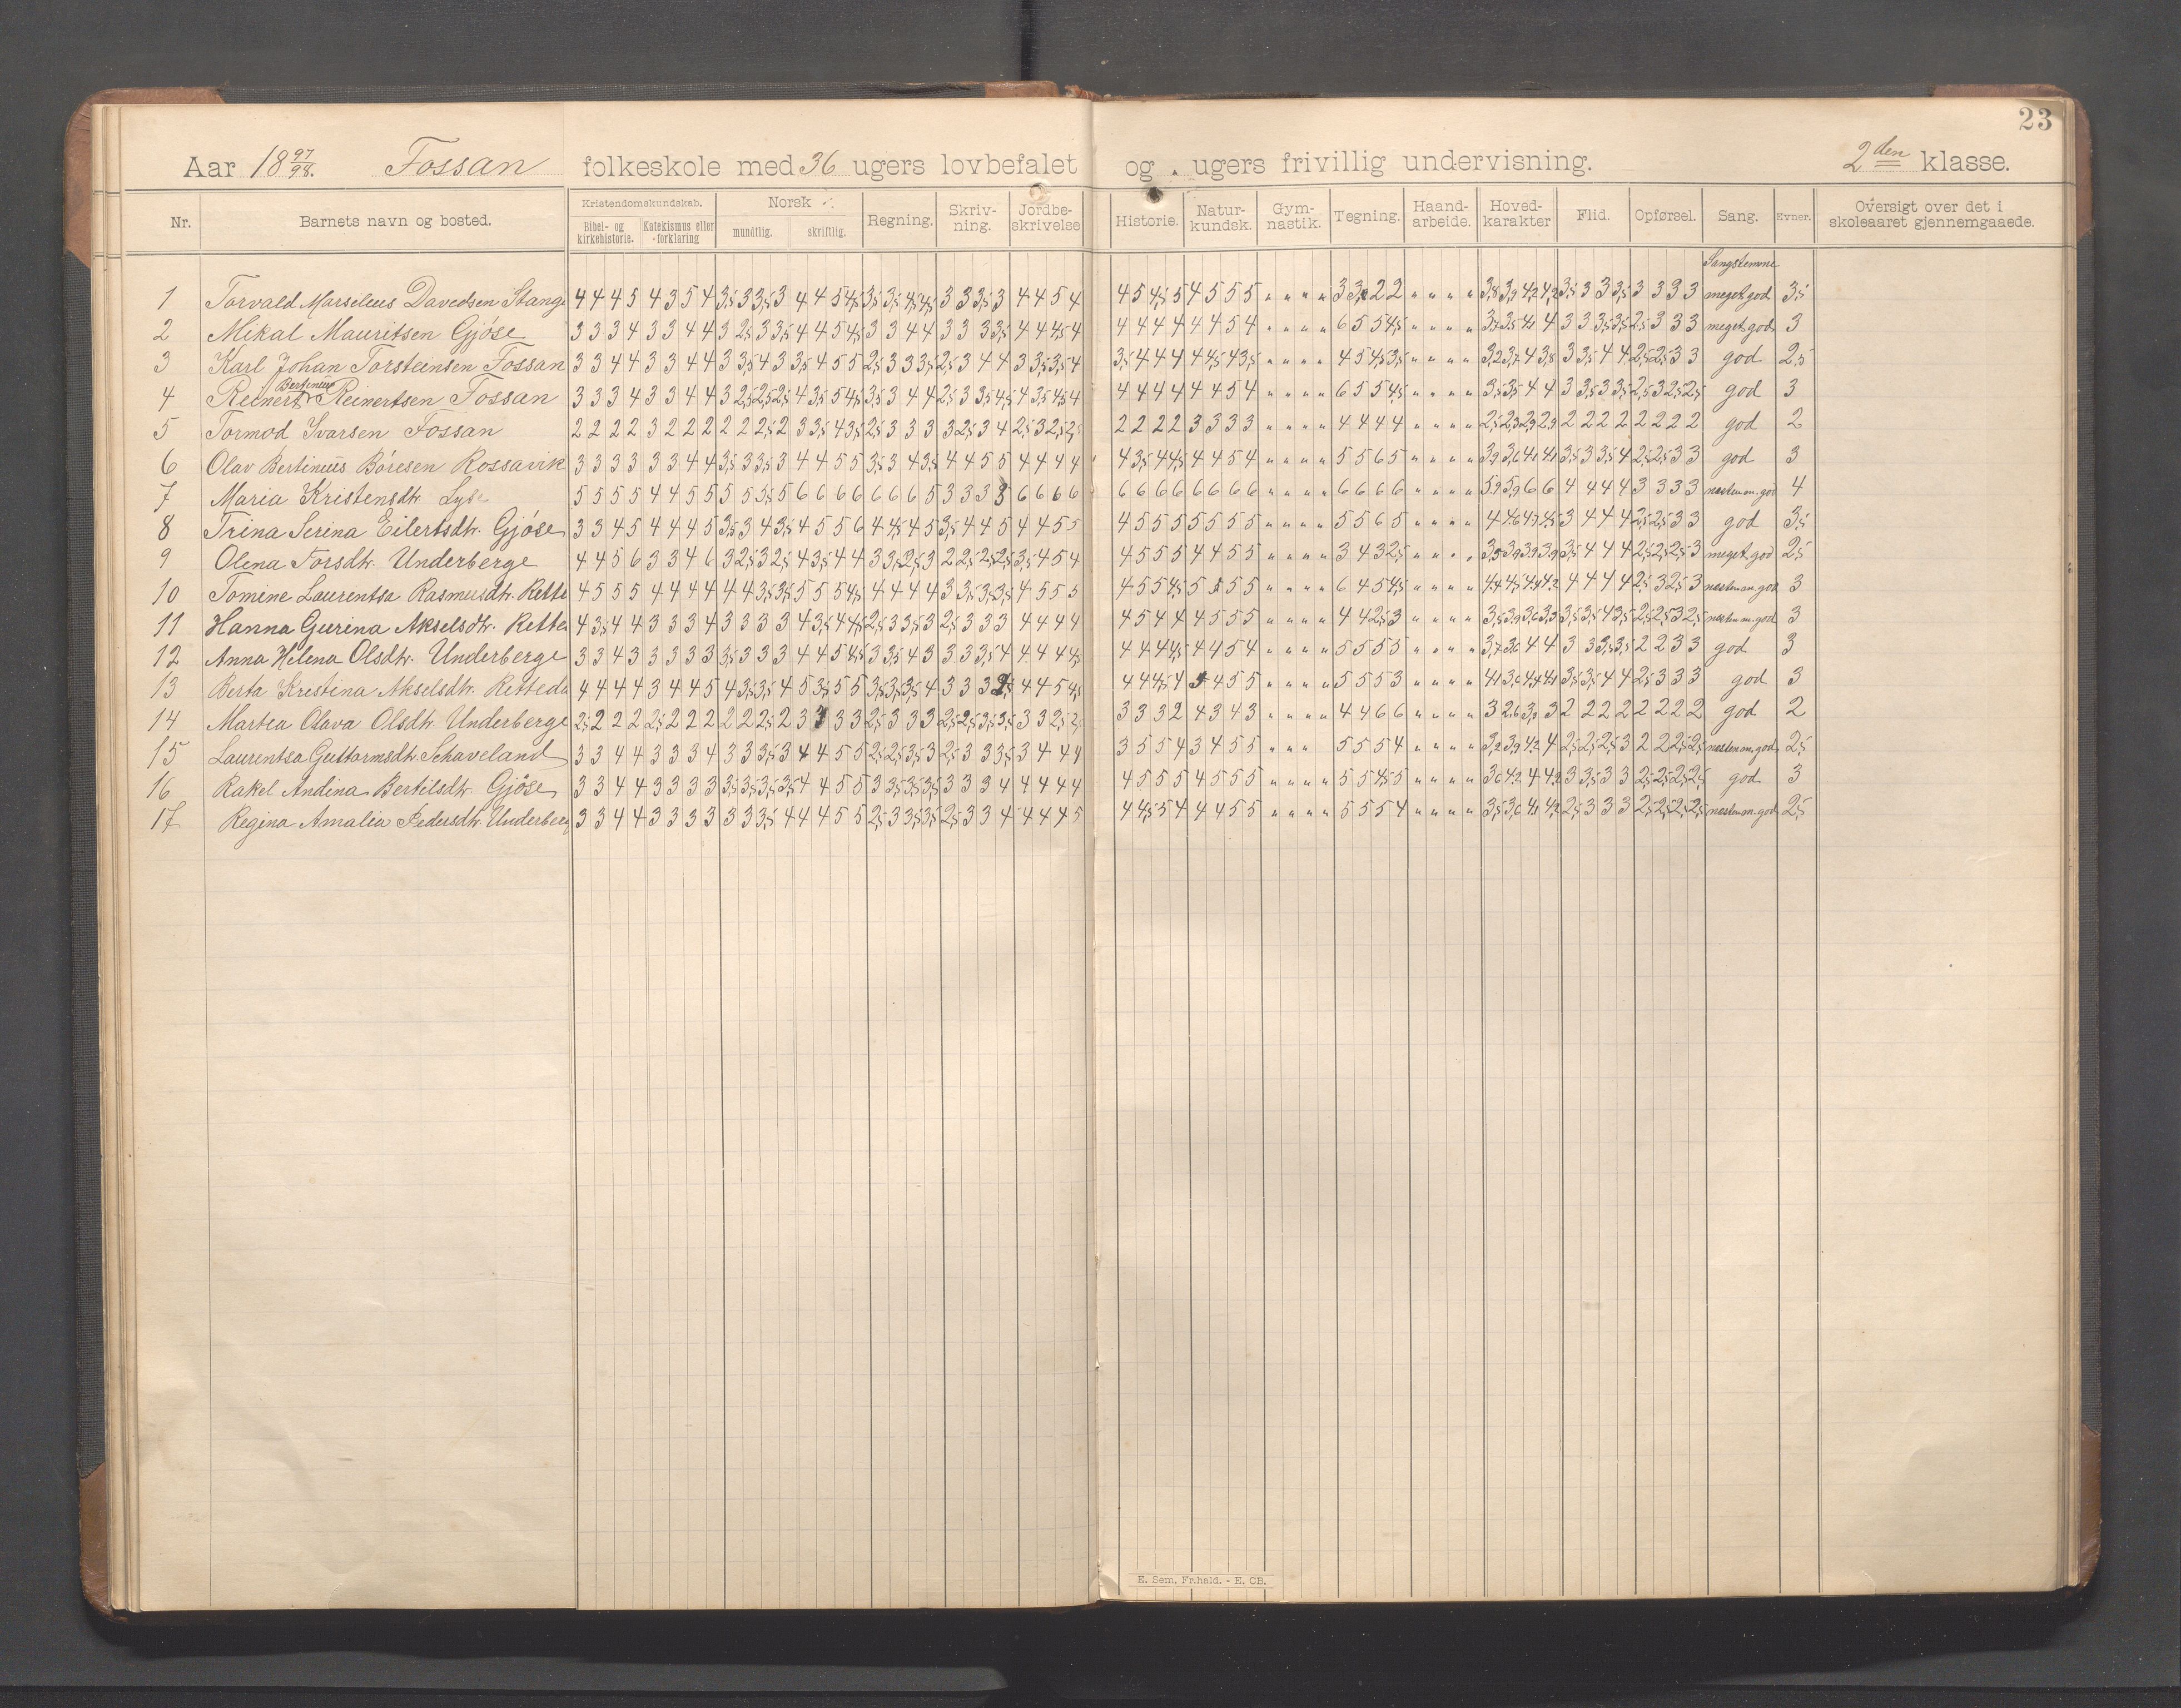 23
Aar 18 97/98. Fossan folkeskole med 36 ugers lovbefalet og . ugers frivillig undervisning. 2den klasse.
Nr. Barnets navn og bosted. Kristendomskundskab. Bibel- og kirkehistorie. Katekismus eller forklaring Norsk mundtlig. skriftlig. Regning. Skriv-ning. Jordbe-skrivelse Historie. Natur-kundsk. Gym-nastik. Tegning. Haand-arbeide. Hoved-karakter Flid. Opførsel. Sang. Evner. Oversigt over det i skoleaaret gjennemgaaede.
Sangstemme
1 Torvald Marselius Davedsen Stange 4 4 4 5 4 3 5 4 3,5 3 3,5 3 4 4 5 4,5 3,5 3,5 4,5 4,5 3 3 3,5 3 4 4 5 4 4 5 4,5 5 4 5 5 5 " " " " 3 3,5 2 2 " " " " 3,8 3,9 4,2 4,2 3,5 3 3 3,5 3 3 3 3 meget god 3,5
2 Mikal Mauritsen Gjöse 3 3 3 4 3 3 4 4 3 2,5 3 3,5 4 4 5 4,5 3 3 4 4 3 3 3 3,5 4 4 4,5 4 4 4 4 4 4 4 5 4 " " " " 6 5 5 4,5 " " " " 3,7 3,5 4,1 4 3 3 3,5 3,5 2,5 3 3 3 meget god 3
3 Karl Johan Torsteinsen Fossan 3 3 4 4 3 3 4 4 3 3,5 4 3 3,5 4 5 5 2,5 3 3 3,5 2,5 3 4 4 3 3,5 3,5 4 3,5 4 4 4 4 4,5 4 3,5 " " " " 4 5 4,5 3,5 " " " " 3,2 3,7 4 3,8 3 3,5 4 4 2,5 2,5 3 3 god 2,5
4 Reinert Bertinius Reinertsen Fossan 3 3 3 4 3 3 4 4 3 2,5 2,5 2,5 4 3,5 5 4,5 3,5 3 4 4 2,5 3 3,5 4,5 4 3,5 4,5 4 4 4 4 4 4 4 5 4 " " " " 6 5 5 4,5 " " " " 3,5 3,5 4 4 3 3,5 3 3,5 2,5 3 2,5 2,5 god 3
5 Tormod Ivarsen Fossan 2 2 2 2 3 2 2 2 2 2 2,5 2 3 3,5 4 3,5 2,5 3 3 3 3 2,5 3 4 2,5 3 2,5 2,5 2 2 2 2 3 3 3 3 " " " " 4 4 4 4 " " " " 2,5 2,3 2,9 2,9 2 2 2 2 2 2 2 2 god 2
6 Olav Bertinius Böresen Rossavik 3 3 3 3 3 3 4 4 3,5 3 3,5 3 4 4 5 5 3,5 3 4 3,5 4 4 5 5 4 4 4 4 4 3,5 4 4,5 4 4 5 4 " " " " 5 5 6 5 " " " " 3,9 3,6 4,1 4,1 3,5 3 3,5 4 2,5 2,5 3 3 god 3
7 Maria Kristensdtr. Lyse 5 5 5 5 4 4 5 5 5 5 3,5 5 6 6 6 6 6 6 6 5 3 3 3 3 6 6 6 6 6 6 6 6 6 6 6 6 " " " " 6 6 6 6 " " " " 5,9 5,9 6 6 4 4 4 4 3 3 3 3 næsten m. god 4
8 Trina Serina Eilertsdtr. Gjöse 3 3 4 5 4 4 4 5 3,5 3 4 3,5 4 5 5 6 4 4,5 4 5 3,5 4 4 5 4 4 5 5 4 5 5 5 5 5 5 5 " " " " 5 5 6 5 " " " " 4 4,6 4,7 4,5 3 4 4 4 2,5 2,5 3 3 god 3,5
9 Olena Torsdtr. Underberge 4 4 5 6 3 3 4 6 3 2,5 3 2,5 4 3,5 4 4 3 3,5 2,5 3 2 2,5 2,5 2,5 3,5 4 5 4 4 5 5 5 4 4 5 5 " " " " 3 4 3 2,5 " " " " 3,5 3,9 3,9 3,9 3,5 4 4 4 2,5 2,5 2,5 3 meget god 2,5
10 Tomine Laurentsa Rasmusdtr. Rette 4 5 5 5 4 4 4 4 4 4 3,5 3,5 5 5 5 4,5 4 4 4 4 3 3,5 3,5 3,5 4 5 5 5 4 5 5 4,5 5 5 5 5 " " " " 6 4 5 4,5 " " " " 4,4 4,5 4,4 4,2 4 4 4 4 2,5 3 2,5 3 næsten m. god 3
11 Hanna Gurina Akselsdtr. Rette 4 3,5 4 4 3 3 3 4 3 3 3 3 4 3,5 4 4,5 2,5 3 3,5 3 2,5 3 3 3 4 4 4 4 4 5 4 4 4 5 5 5 " " " " 4 4 2,5 3 " " " " 3,5 3,9 3,6 3,9 3,5 3,5 4 3,5 2,5 2,5 3 2,5 næsten m. god 3
12 Anna Helena Olsdtr. Underberge 3 3 4 3 3 3 3 3 3,5 3 3 3 4 4 5 4,5 3 3,5 4 3 3 3 3,5 4 4 4 4 4,5 4 4 4 4,5 4 4 5 4 " " " " 5 5 5 5 " " " " 3,7 3,6 4 4 3 3 3,5 3,5 2 2 3 3 god 3
13 Berta Kristina Akselsdtr. Rettedal 4 4 4 4 3 4 4 5 4 3,5 3,5 4 5 3,5 5 5 3,5 3,5 3,5 4 3 3 3 2,5 4 4 5 4,5 4 4 4,5 4 5 4 5 5 " " " " 5 5 5 3 " " " " 4,1 3,6 4,4 4,1 3,5 3,5 4 4 2,5 3 3 3 god 3
14 Martea Olava Olsdtr. Underberge 2,5 2 2 2 2,5 2 2 2 2 2 2,5 2 3 3 3 3 2,5 3 3 3 2,5 2,5 3,5 3,5 3 3 2,5 2,5 3 3 3 2 4 3 4 3 " " " " 4 4 6 6 " " " " 3 2,6 3,2 3 2 2 2 2 2 2 2 2 god 2
15 Laurentsa Guttormsdtr. Schaveland 3 3 4 4 3 3 3 4 3 3 3,5 3 4 4 5 5 2,5 2,5 3,5 3 2,5 3 3 3,5 3 4 4 4 3 5 5 4 3 4 5 5 " " " 5 5 5 4 " " " " 3,2 3,9 4,2 4 2,5 2,5 2,5 3 2 2 2,5 2,5 næsten m. god 2,5
16 Rakel Andina Bertilsdtr. Gjöse 3 3 4 4 3 3 3 3 3,5 3,5 3,5 3,5 4 4 5 5 3 3,5 3,5 3,5 3 3 3 4 4 4 4 4 4 5 5 5 4 5 5 5 " " " " 5 5 4,5 5 " " " " 3,6 4,2 4 4,2 3 3,5 3 3 2,5 2,5 2,5 2,5 god 3
17 Regina Amalia Pedersdtr. Underberg 3 3 4 4 3 3 3 3 3 3 3,5 4 4 4 5 5 2,5 3 3,5 3,5 2,5 3 3 4 4 4 4 5 4 4,5 5 4 4 4 5 5 " " " " 5 5 5 4 " " " " 3,5 3,6 4,1 4,2 2,5 3 3 3 2,5 2,5 2,5 2,5 næsten m. god 2,5
E. Sem, Fr.hald. - E. CB.